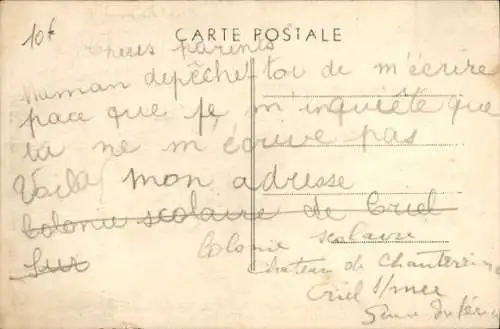 10f
CARTE POSTALE
Cheres parents
Maman depêche toi de m'écrire
pace que je m'inquiéte que
ta ne m'écrive pas
Voila mon adresse
Colonie scolaire de Criel
Sur
Colonie scolaire
Chateau de Chantereine
Criel s/mer
Seine Inférie